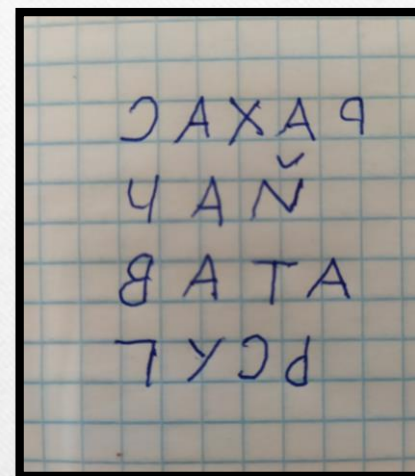 САХАР
ЧАЙ
ВАТА
ГУСЬ